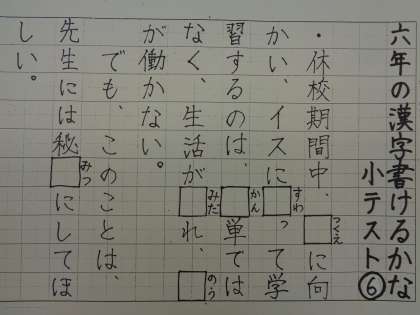 六年の漢字書けるかな
小テスト⑥
・休校期間中、□に向
つくえ
かい、イスに□って学
すわ
習するのは、□単では
かん
なく、生活が□れ、□
みだ
のう
が働かない。
でも、このことは、
先生には秘□にしてほ
みつ
しい。